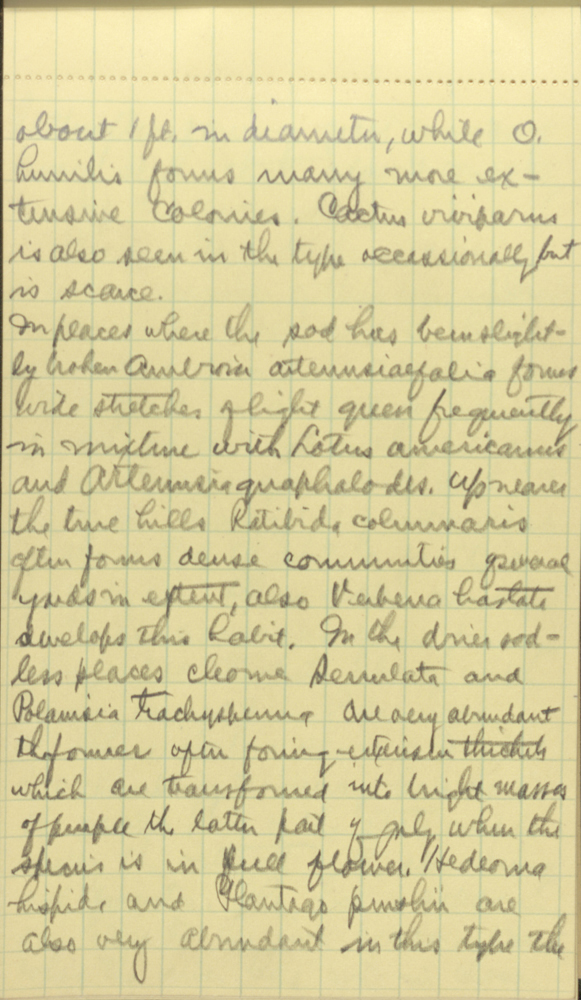 about 1 ft. in diameter, while O.
humilis forms many more ex-
tensive colonies. Cactus viviparus
is also seen in the type occassionally but
is scarce.
In places where the sod has been slight-
ly broken Ambrosia artemisiaefolia forms
wide stretches of light green frequently
in mixture with Lotus americanus
and Artemisia gnaphalodes. Up nearer
the true hills Ratibida columnaris
often forms dense communities several
yards in extent, also Verbena hastata
develops this habit. In the drier sod-
less places Cleome serrulata and
Polanisia trachysperma are very abundant
the former often foring extensive thickets
which are transformed into bright masses
of purple the latter part of July when the
species is in full flower. Hedeoma
hispida and Plantago purshii are
also very abundant in this type the